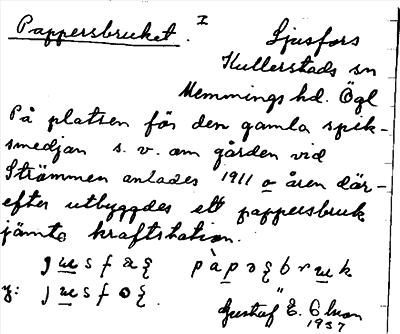 Pappersbruket. I
Ljusfors
Kullerstads sn
Memmings hd. Ögl
På platsen för den gamla spik-
smedjan s. v. om gården vid
Strömmen anlades 1911 o åren där-
efter utbyggdes ett pappersbruk
jämte kraftstation.
Gustaf E.
1937